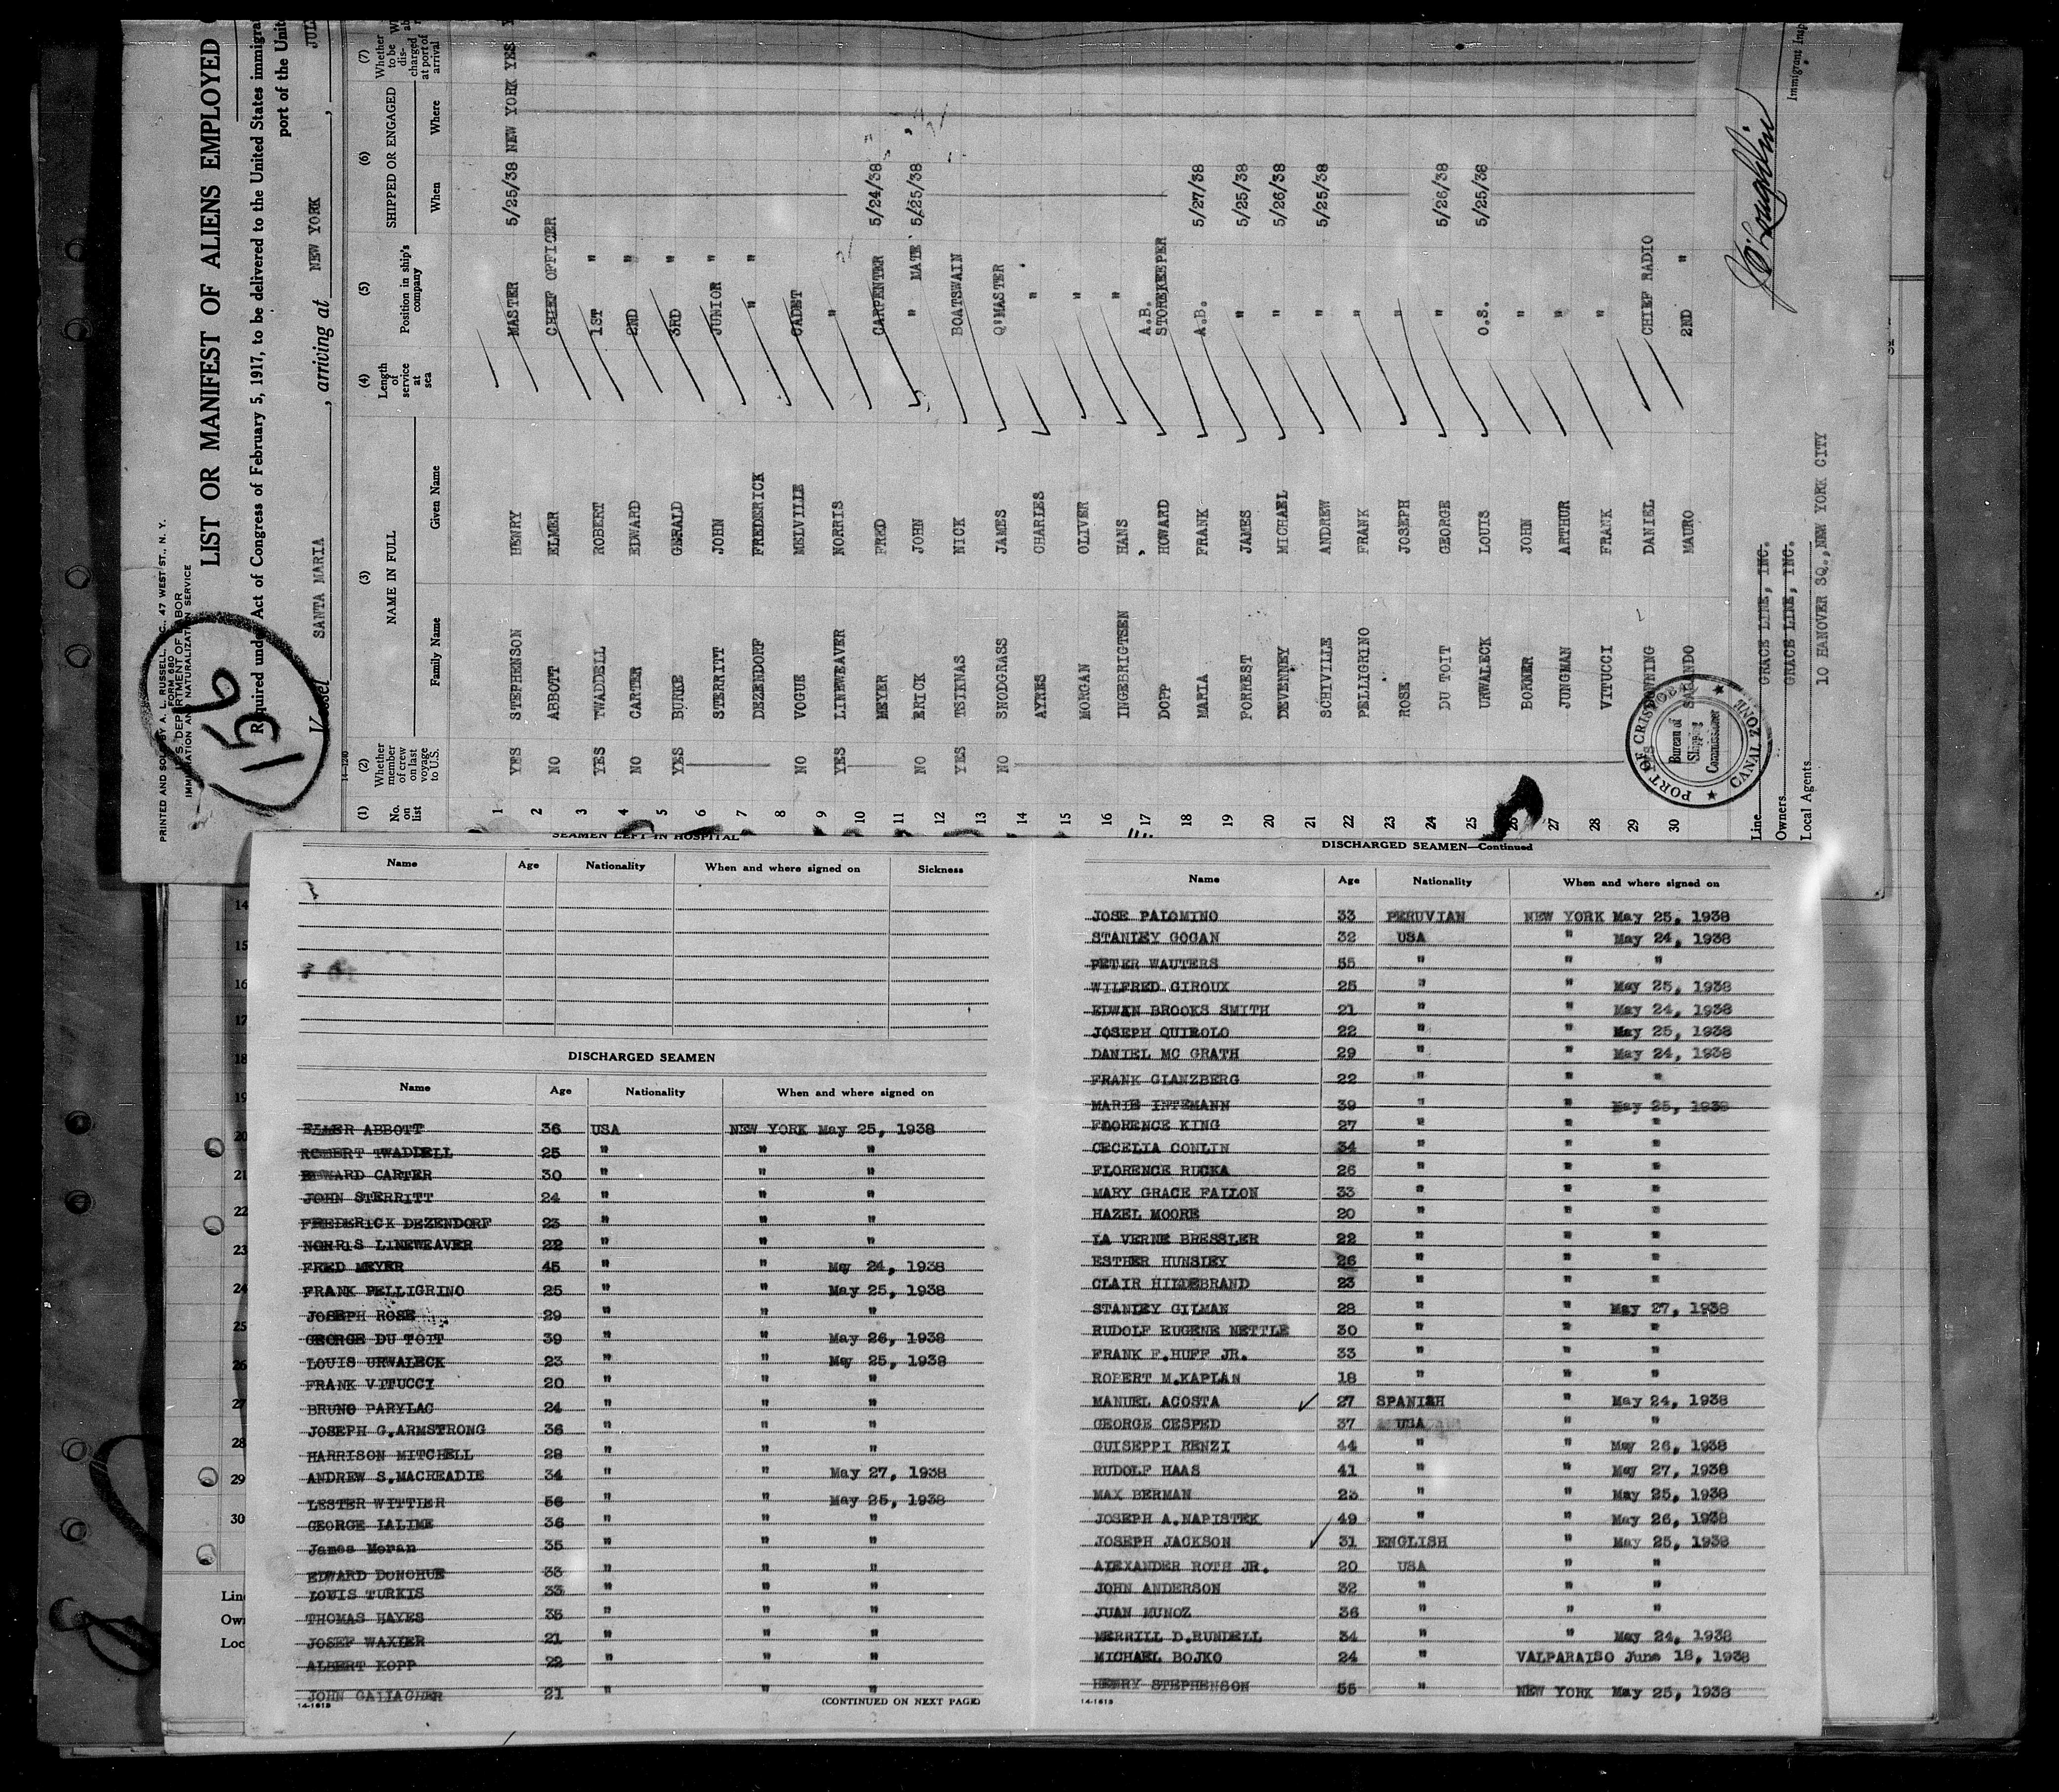 PRINTED AND SOLD BY A. L. RUSSELL, INC., 47 WEST ST., N. Y.
FORM 680
U. S. DEPARTMENT OF LABOR
IMMIGRATION AND NATURALIZATION SERVICE
196
LIST OR MANIFEST OF ALIENS EMPLOYED
Required under Act of Congress of February 5, 1917, to be delivered to the United States immigra
port of the Unit
Vessel SANTA MARIA , arriving at NEW YORK , JUL
14-1240
(1) (2) (3) (4) (5) (6) (7)
No. on list Whether member of crew on last voyage to U.S. NAME IN FULL Length of service at sea Position in ship's company SHIPPED OR ENGAGED Whether to be discharged at port of arrival
Family Name Given Name When Where
1 YES STEPHENSON HENRY MASTER 5/25/38 NEW YORK YES
2 NO ABBOTT ELMER CHIEF OFFICER
3 YES TWADDELL ROBERT 1ST "
4 NO CARTER EDWARD 2ND "
5 YES BURKE GERALD 3RD "
6 STERRITT JOHN JUNIOR "
7 DEZENDORF FREDERICK " "
8 NO VOGUE MELVILLE CADET
9 YES LINEWEAVER NORRIS "
10 MEYER FRED CARPENTER 5/24/38
11 NO ERICK JOHN " MATE 5/25/38
12 YES TSIKNAS NICK BOATSWAIN
13 NO SNODGRASS JAMES Q'MASTER
14 AYRES CHARLES "
15 MORGAN OLIVER "
16 INGEBRIGTSEN HANS "
17 DOPP HOWARD A.B. STOREKEEPER
18 MARIA FRANK A.B. 5/27/38
19 FORREST JAMES " 5/25/38
20 DEVENNEY MICHAEL " 5/26/38
21 SCHIVILLE ANDREW " 5/25/38
22 PELLIGRINO FRANK "
23 ROSE JOSEPH "
24 DU TOIT GEORGE " 5/26/38
25 URWALECK LOUIS O.S. 5/25/38
26 BORNER JOHN "
27 JUNGMAN ARTHUR "
28 VITUCCI FRANK "
29 DANIEL CHIEF RADIO
30 MAURO 2ND "
PORT OF CRISTOBAL
Bureau of Shipping Commissioner
CANAL ZONE
Line GRACE LINE, INC.
Owners GRACE LINE, INC.
Local Agents 10 HANOVER SQ., NEW YORK CITY
Immigrant Insp
SEAMEN LEFT IN HOSPITAL
Name Age Nationality When and where signed on Sickness
DISCHARGED SEAMEN
Name Age Nationality When and where signed on
ELMER ABBOTT 36 USA NEW YORK May 25, 1938
ROBERT TWADDELL 25 " " "
EDWARD CARTER 30 " " "
JOHN STERRITT 24 " " "
FREDERICK DEZENDORF 23 " " "
NORRIS LINEWEAVER 22 " " "
FRED MEYER 45 " " May 24, 1938
FRANK PELLIGRINO 25 " " May 25, 1938
JOSEPH ROSE 29 " " "
GEORGE DU TOIT 39 " " May 26, 1938
LOUIS URWALECK 23 " " May 25, 1938
FRANK VITUCCI 20 " " "
BRUNO PARYLAC 24 " " "
JOSEPH G. ARMSTRONG 36 " " "
HARRISON MITCHELL 28 " " "
ANDREW S. MACREADIE 34 " " May 27, 1938
LESTER WITTIER 56 " " May 25, 1938
GEORGE LALIME 36 " " "
James Moran 35 " " "
EDWARD DONOHUE 33 " " "
LOUIS TURKIS 33 " " "
THOMAS HAYES 35 " " "
JOSEF WAXLER 21 " " "
ALBERT KOPP 22 " " "
JOHN GALLAGHER 21 " " "
14-1618 (CONTINUED ON NEXT PAGE)
DISCHARGED SEAMEN—Continued
Name Age Nationality When and where signed on
JOSE PALOMINO 33 PERUVIAN NEW YORK May 25, 1938
STANLEY GOGAN 32 USA " May 24, 1938
PETER WAUTERS 55 " " "
WILFRED GIROUX 25 " " May 25, 1938
EDWAN BROOKS SMITH 21 " " May 24, 1938
JOSEPH QUIROLO 22 " " May 25, 1938
DANIEL MC GRATH 29 " " May 24, 1938
FRANK GLANZBERG 22 " " "
MARIE INTEMANN 39 " " May 25, 1938
FLORENCE KING 27 " " "
CECELIA CONLIN 34 " " "
FLORENCE RUCKA 26 " " "
MARY GRACE FALLON 33 " " "
HAZEL MOORE 20 " " "
LA VERNE BRESSLER 22 " " "
ESTHER HUNSLEY 26 " " "
CLAIR HILDEBRAND 23 " " "
STANLEY GILMAN 28 " " May 27, 1938
RUDOLF EUGENE NETTLE 30 " " "
FRANK F. HUFF JR. 33 " " "
ROBERT M. KAPLAN 18 " " "
MANUEL ACOSTA 27 SPANISH " May 24, 1938
GEORGE CESPED 37 USA " "
GUISEPPI RENZI 44 " " May 26, 1938
RUDOLF HAAS 41 " " May 27, 1938
MAX BERMAN 23 " " May 25, 1938
JOSEPH A. NAPISTEK 49 " " May 26, 1938
JOSEPH JACKSON 31 ENGLISH " May 25, 1938
ALEXANDER ROTH JR. 20 USA " "
JOHN ANDERSON 32 " " "
JUAN MUNOZ 36 " " "
MERRILL D. RUNDELL 34 " " May 24, 1938
MICHAEL BOJKO 24 " VALPARAISO June 18, 1938
HENRY STEPHENSON 55 " NEW YORK May 25, 1938
14-1618
14
15
16
17
18
19
20
21
22
23
24
25
26
27
28
29
30
Lin
Ow
Loc